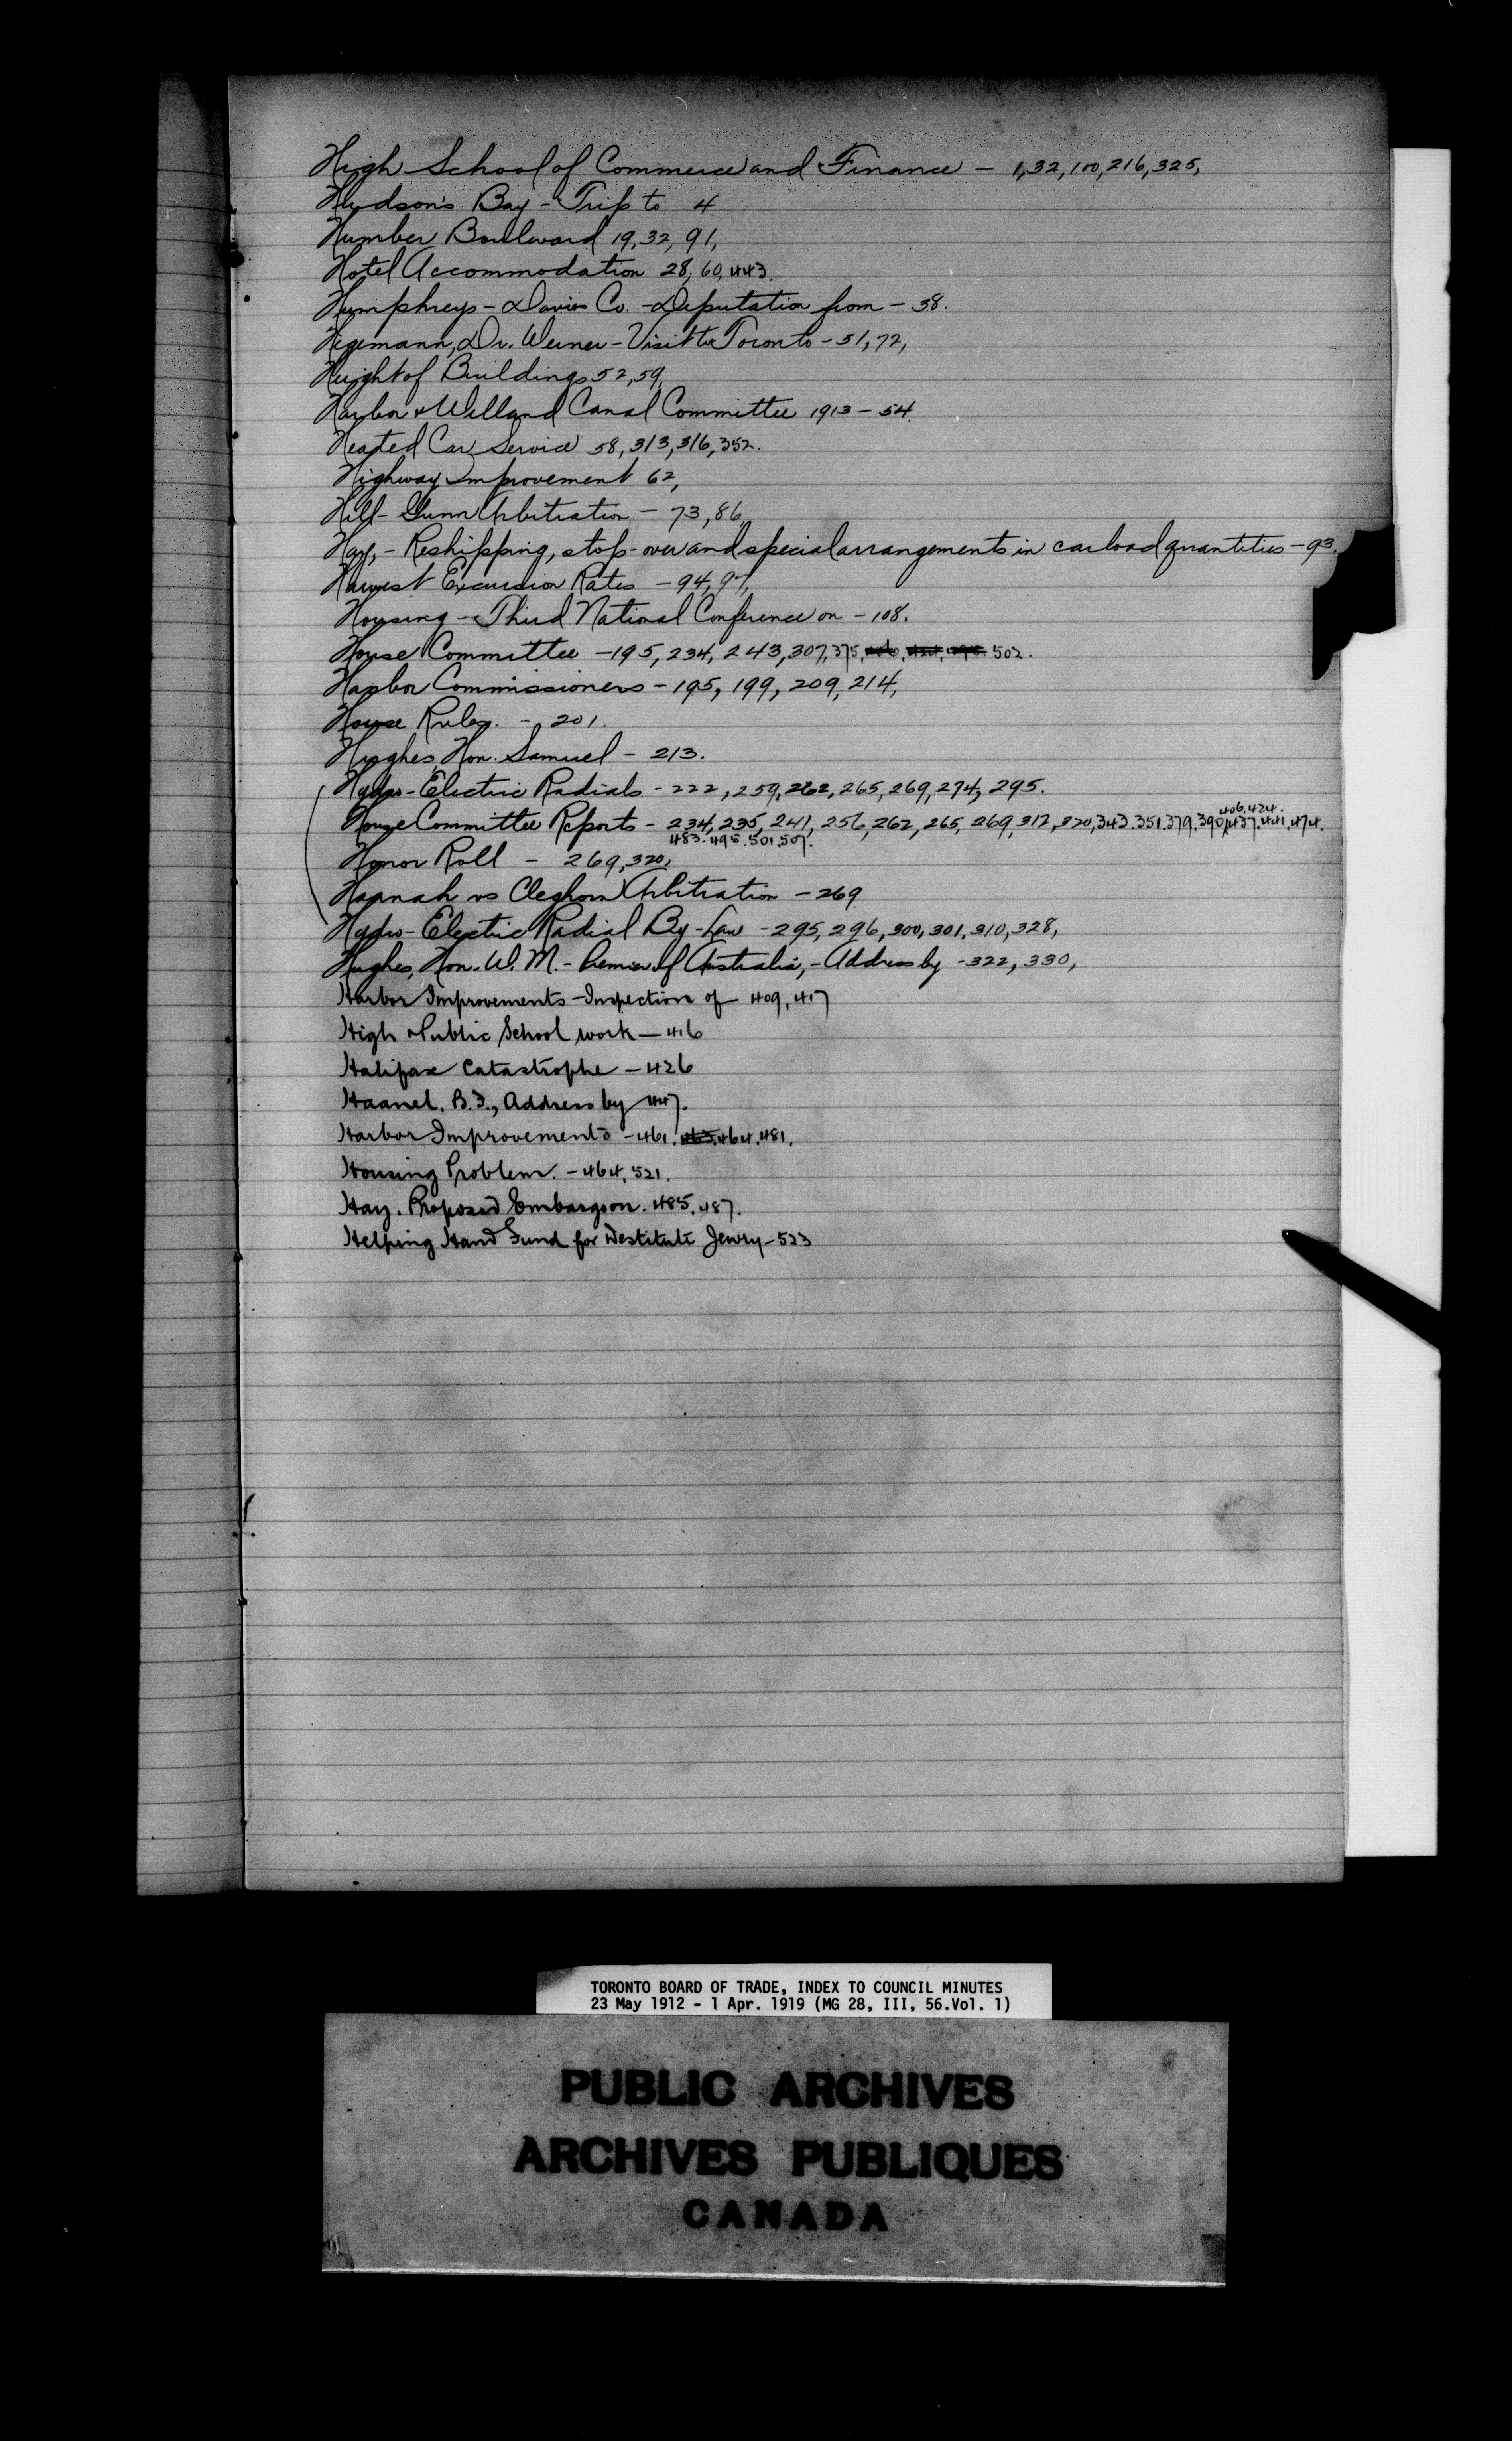 High School of Commerce and Finance - 1, 32, 100, 216, 325,
Hudson's Bay - Trip to 4
Humber Boulevard 19, 32, 91,
Hotel Accommodation 28, 60, 443.
Humphreys - Davies Co. - Deputation from - 38.
Hegemann, Dr. Werner - Visit to Toronto - 51, 72,
Height of Buildings 52, 59,
Harbor & Welland Canal Committee 1913 - 54.
Heated Car Service 58, 313, 316, 352.
Highway Improvement 62,
Hill - Gunn Arbitration - 73, 86,
Hay, - Reshipping, stop-over and special arrangements in carload quantities - 93.
Harvest Excursion Rates - 94, 97,
Housing - Third National Conference on - 108.
House Committee - 195, 234, 243, 307, 375, 502.
Harbor Commissioners - 195, 199, 209, 214,
House Rules. - 201.
Hughes, Hon. Samuel - 213.
Hydro-Electric Radials - 222, 259, 262, 265, 269, 274, 295.
406. 424.
House Committee Reports - 234, 235, 241, 256, 262, 265, 269, 312, 320, 343. 351. 379. 390, 437. 441. 474.
483. 495. 501. 507.
Honor Roll - 269, 320,
Hannah vs Cleghorn Arbitration - 269
Hydro-Electric Radial By-Law - 295, 296, 300, 301, 310, 328,
Hughes, Hon. W. M. - Premier of Australia, - Address by - 322, 330,
Harbor Improvements - Inspection of - 409, 417
High & Public School work - 416
Halifax Catastrophe - 426
Haanel. B. F., Address by 447.
Harbor Improvements - 461. 463. 464. 481.
Housing Problem. - 464, 521.
Hay. Proposed Embargo on. 485. 487.
Helping Hand Fund for Destitute Jewry - 523
TORONTO BOARD OF TRADE, INDEX TO COUNCIL MINUTES
23 May 1912 - 1 Apr. 1919 (MG 28, III, 56.Vol. 1)
PUBLIC ARCHIVES
ARCHIVES PUBLIQUES
CANADA